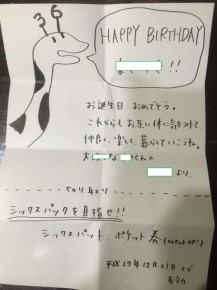 36
HAPPY BIRTHDAY
!!
お誕生日、おめでとう。
これからもお互い体に気をつけて、
仲良く、楽しく、暮らしていこうね。
大 な くんへ
より.
キリトリ
シックスパックを目指せ!!
シックスパット、ポケット券
平成27年12月31日まで
有効